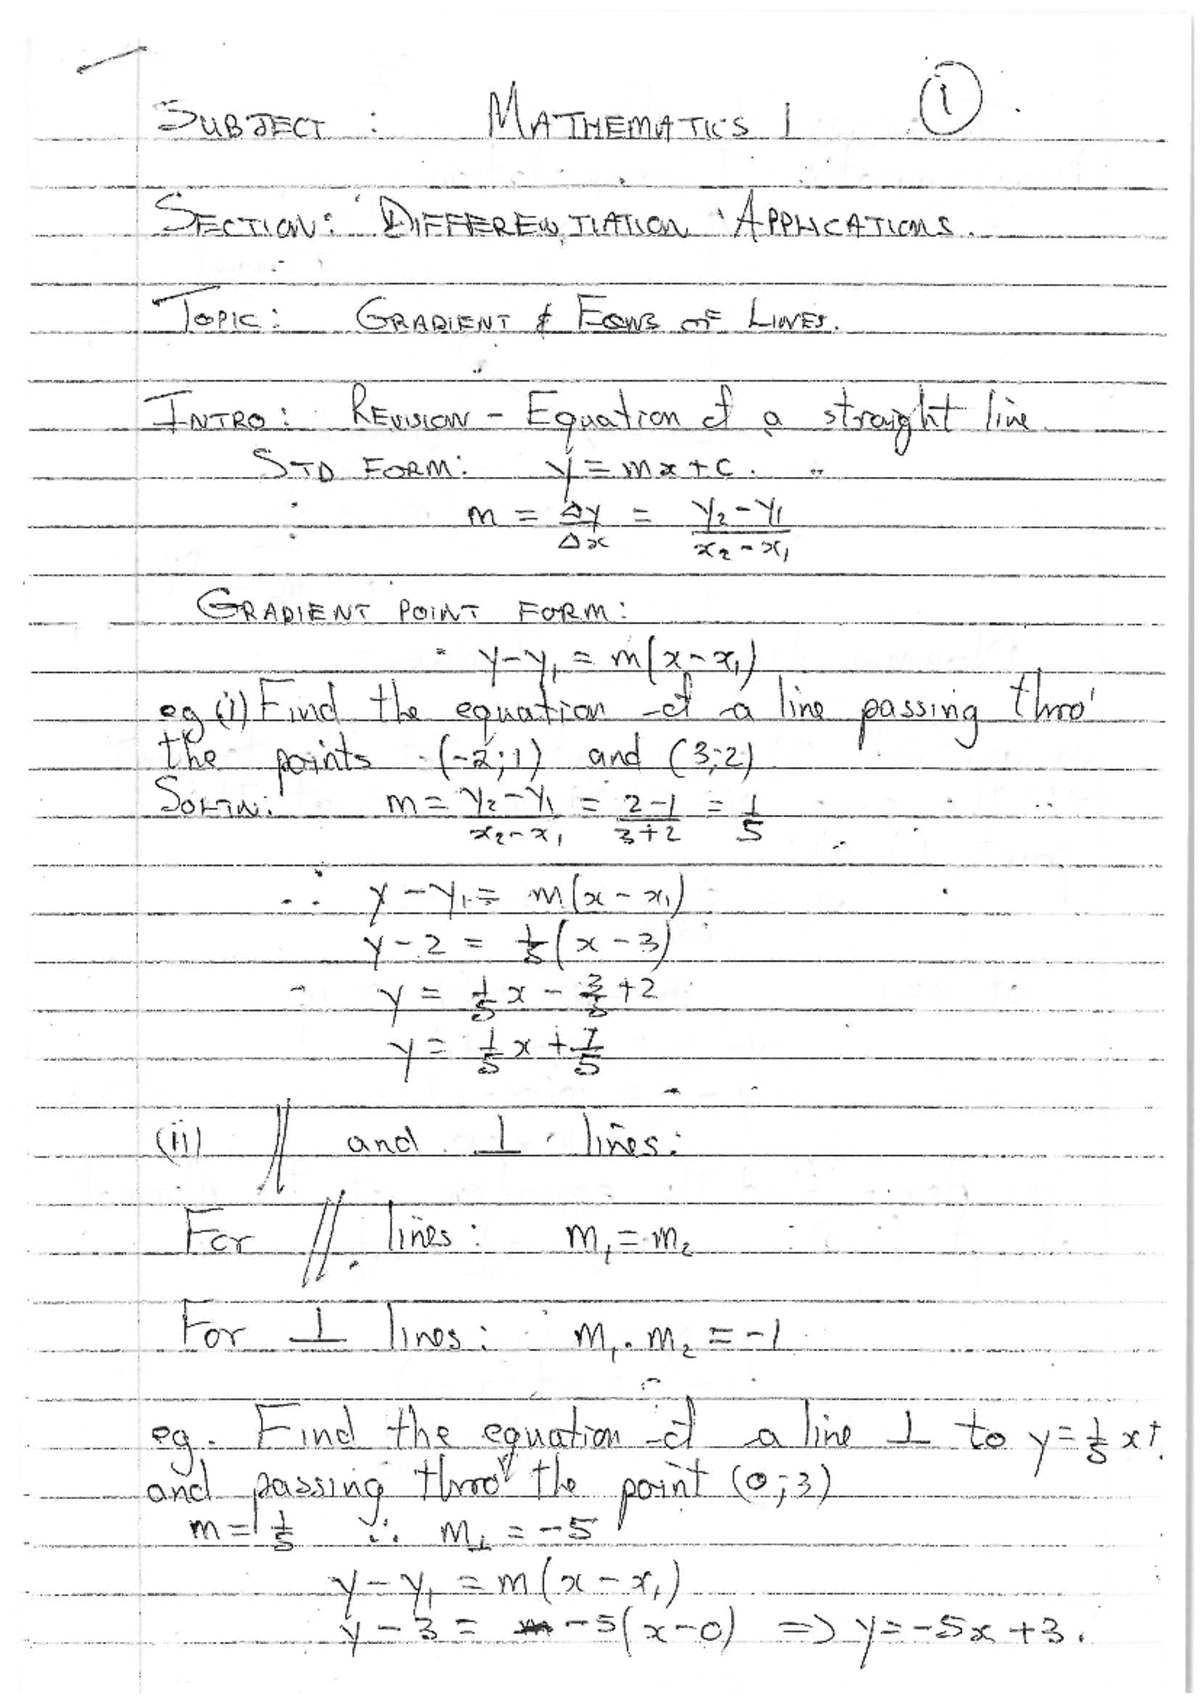 ①
SUBJECT : MATHEMATICS 1
SECTION: DIFFERENTIATION APPLICATIONS.
TOPIC: GRADIENT & EQNS OF LINES.
INTRO: REVISION - Equation of a straight line
STD FORM: y = mx + c.
m = Δy/Δx = (y₂ - y₁)/(x₂ - x₁)
GRADIENT POINT FORM:
y - y₁ = m(x - x₁)
eg (i) Find the equation of a line passing thro'
the points (-2;1) and (3;2)
SOLTN: m = (y₂ - y₁)/(x₂ - x₁) = (2 - 1)/(3 + 2) = 1/5
∴ y - y₁ = m(x - x₁)
y - 2 = 1/5 (x - 3)
y = 1/5 x - 3/5 + 2
y = 1/5 x + 7/5
(ii) // and ⊥ lines:
For // lines: m₁ = m₂
For ⊥ lines: m₁ . m₂ = -1
eg. Find the equation of a line ⊥ to y = 1/5 x +
and passing thro' the point (0;3)
m = 1/5 ∴ m⊥ = -5
y - y₁ = m(x - x₁)
y - 3 = -5(x - 0) => y = -5x + 3.